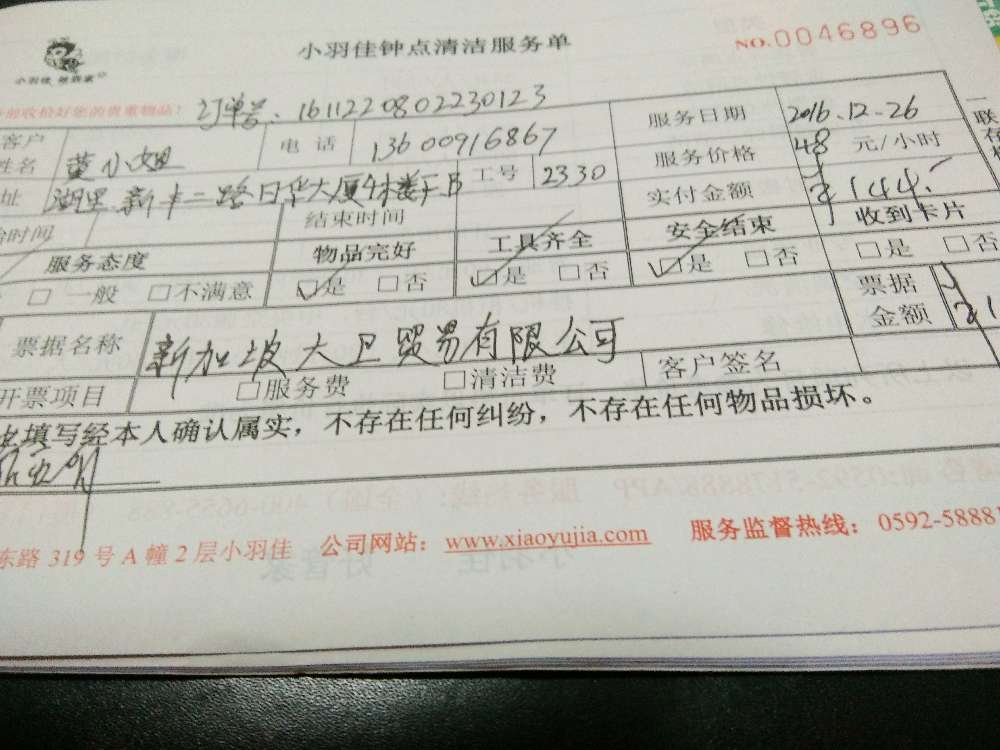 小羽佳钟点清洁服务单
NO.0046896
小羽佳 做到家
前收拾好您的贵重物品! 订单号:1611220802230123
客户姓名 董小姐 电话 13600916867 服务日期 2016.12.26
服务价格 48 元/小时
址 湖里 新丰二路日华大厦 工号 2330 实付金额 144.
始时间 结束时间
服务态度 物品完好 工具齐全 安全结束 收到卡片
□ 一般 □不满意 □是 □否 □是 □否 □是 □否 □是 □否
票据名称 新加坡大卫贸易有限公司 票据金额
开票项目 □服务费 □清洁费 客户签名
上填写经本人确认属实,不存在任何纠纷,不存在任何物品损坏。
东路 319 号 A 幢 2 层小羽佳 公司网站: www.xiaoyujia.com 服务监督热线: 0592-58881
一联存根